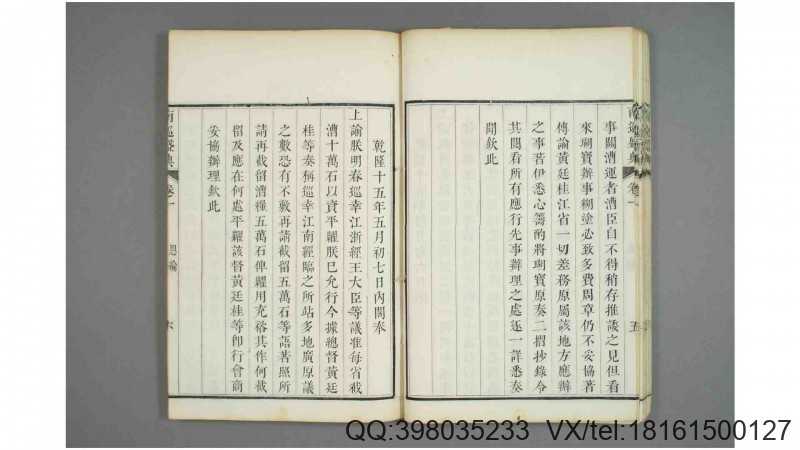 南巡盛典 卷一
五
事關漕運者漕臣自不得稍存推諉之見但看
來瑚寶辦事糊塗必致多費周章仍不妥協著
傳諭黃廷桂江省一切差務原屬該地方應辦
之事著伊悉心籌酌將瑚寶原奏二摺抄錄令
其閱看所有應行先事辦理之處逐一詳悉奏
聞欽此
乾隆十五年五月初七日內閣奉
上諭朕明春巡幸江浙經王大臣等議准每省截
漕十萬石以資平糶朕已允行今據總督黃廷
桂等奏稱巡幸江南經臨之所站多地廣原議
之數恐有不敷再請截留五萬石等語著照所
請再截留漕糧五萬石俾糶用充裕其作何截
留及應在何處平糶該督黃廷桂等即行會商
妥協辦理欽此
南巡盛典 卷一 恩綸
六
QQ:398035233 VX/tel:18161500127